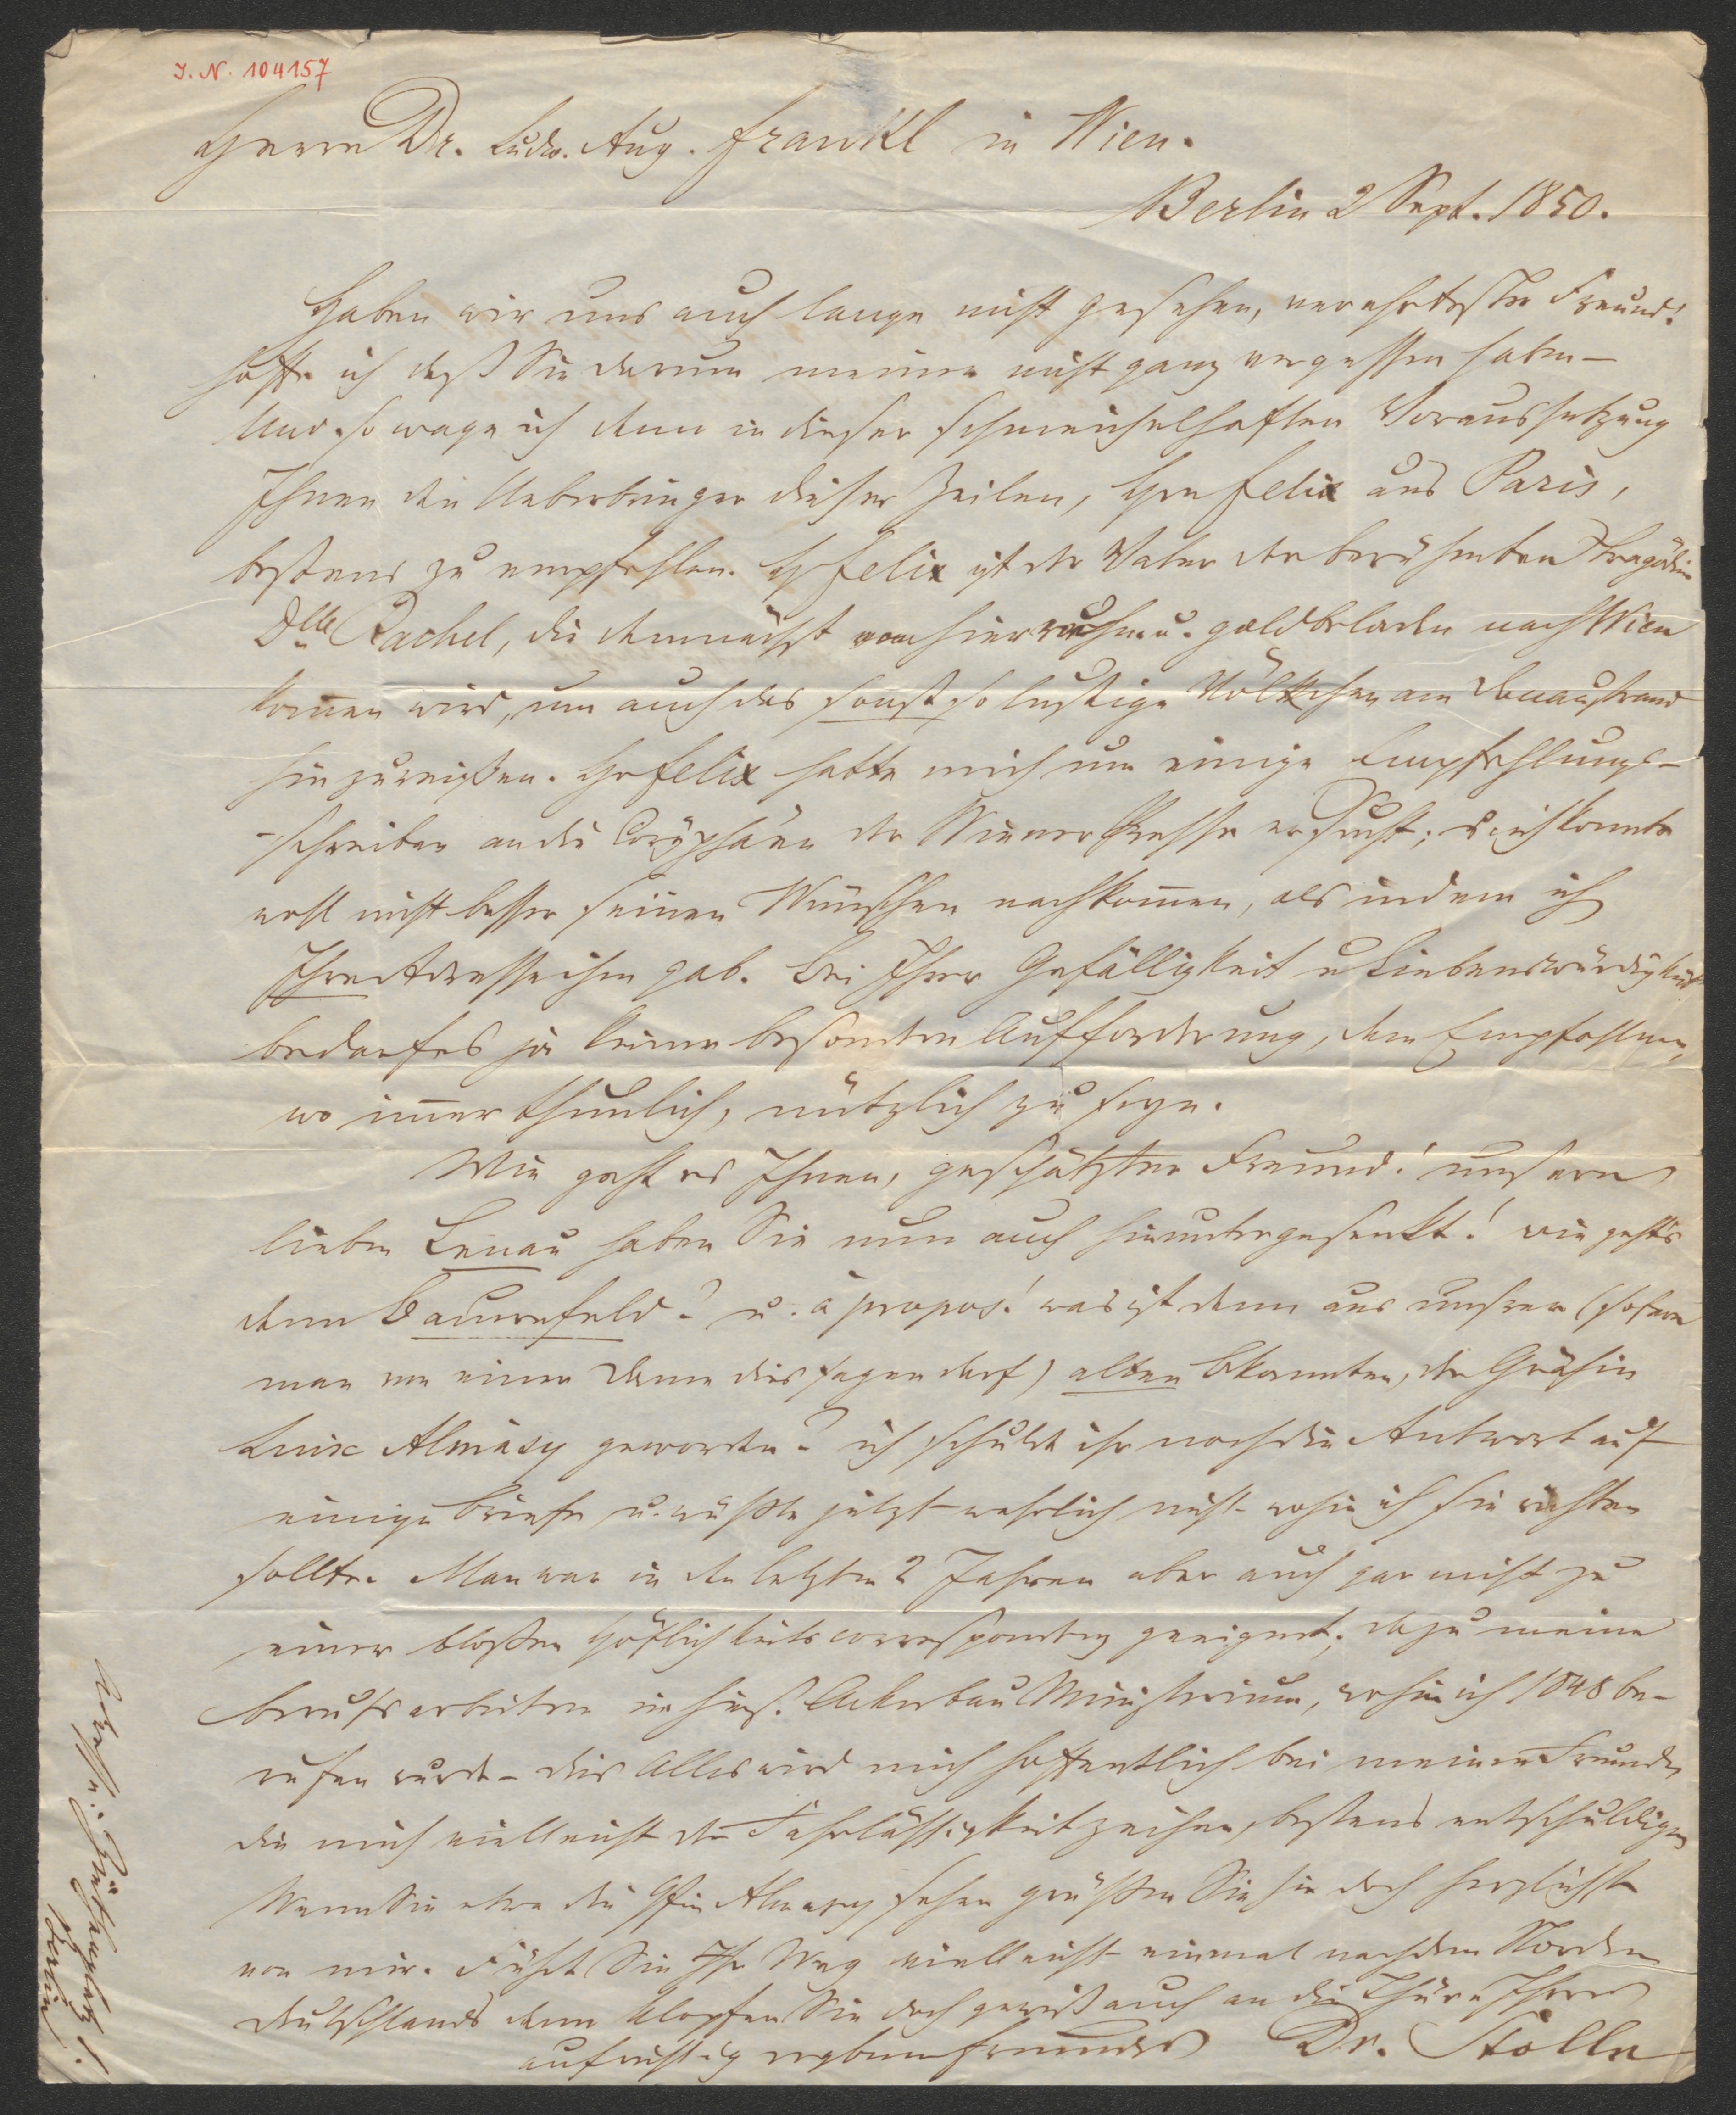 I. N. 104157
Herrn Dr. Ludw. Aug. Frankl in Wien.
Berlin 2 Sept. 1850.
Haben wir uns auch lange nicht gesehen, verehrtester Freund!
hoffe ich daß Sie darum meiner nicht ganz vergessen haben –
Und so wage ich denn in dieser schmeichelhaften Voraussetzung
Ihnen den Ueberbringer dieser Zeilen, Hrn Felix aus Paris,
bestens zu empfehlen. H Felix ist der Vater der berühmten Tragödin
Dlle Rachel, die demnächst von hier ruhm u. goldbeladen nach Wien
kom̄en wird, um auch das sonst so lustige Völkchen am Donaustrand
hinzureißen. Hr Felix hatte mich um einige Empfehlungs-
-schreiben an die Coryphäen der Wiener Presse ersucht; u ich konnte
wohl nicht besser seinen Wünschen nachkom̄en, als indem ich
Ihre Adresse ihm gab. Bei Ihrer Gefälligkeit u Liebenswürdigkeit
bedarf es ja keiner besondren Aufforderung, dem Empfohlenen,
wo im̄er thunlich, nützlich zu seyn.
Wie geht es Ihnen, geschätzter Freund! unsern
lieben Lenau haben Sie nun auch hinuntergesenkt! wie geht's
denn Bauernfeld? u. à propos! was ist denn aus unsrer (sofern
man von einer Dame dies sagen darf) alten Bekannten, der Gräfin
Luise Almásy geworden? ich schulde ihr noch die Antwort auf
einige Briefe u. wüßte jetzt wahrlich nicht wohin ich sie richten
sollte. Man war in den letzten 2 Jahren aber auch gar nicht zu
einer bloßen Höflichkeitscorrespondenz geeignet; dazu meine
Berufsarbeiten im hies. Ackerbau Ministerium, wohin ich 1848 be-
rufen wurde – dies Alles wird mich hoffentlich bei meinen Freunden,
die mich vielleicht der Fahrlässigkeit zeihen, bestens entschuldigen
Wenn Sie etwa die Gfin Almasy sehen grüßen Sie sie doch herzlichst
von mir. Führt Sie Ihr Weg vielleicht einmal nach dem Norden
Deutschlands dann klopfen Sie doch gewiß auch an die Thüre Ihres
aufrichtig ergebenen Freundes Dr. Stolle
Adresse:
Berlin